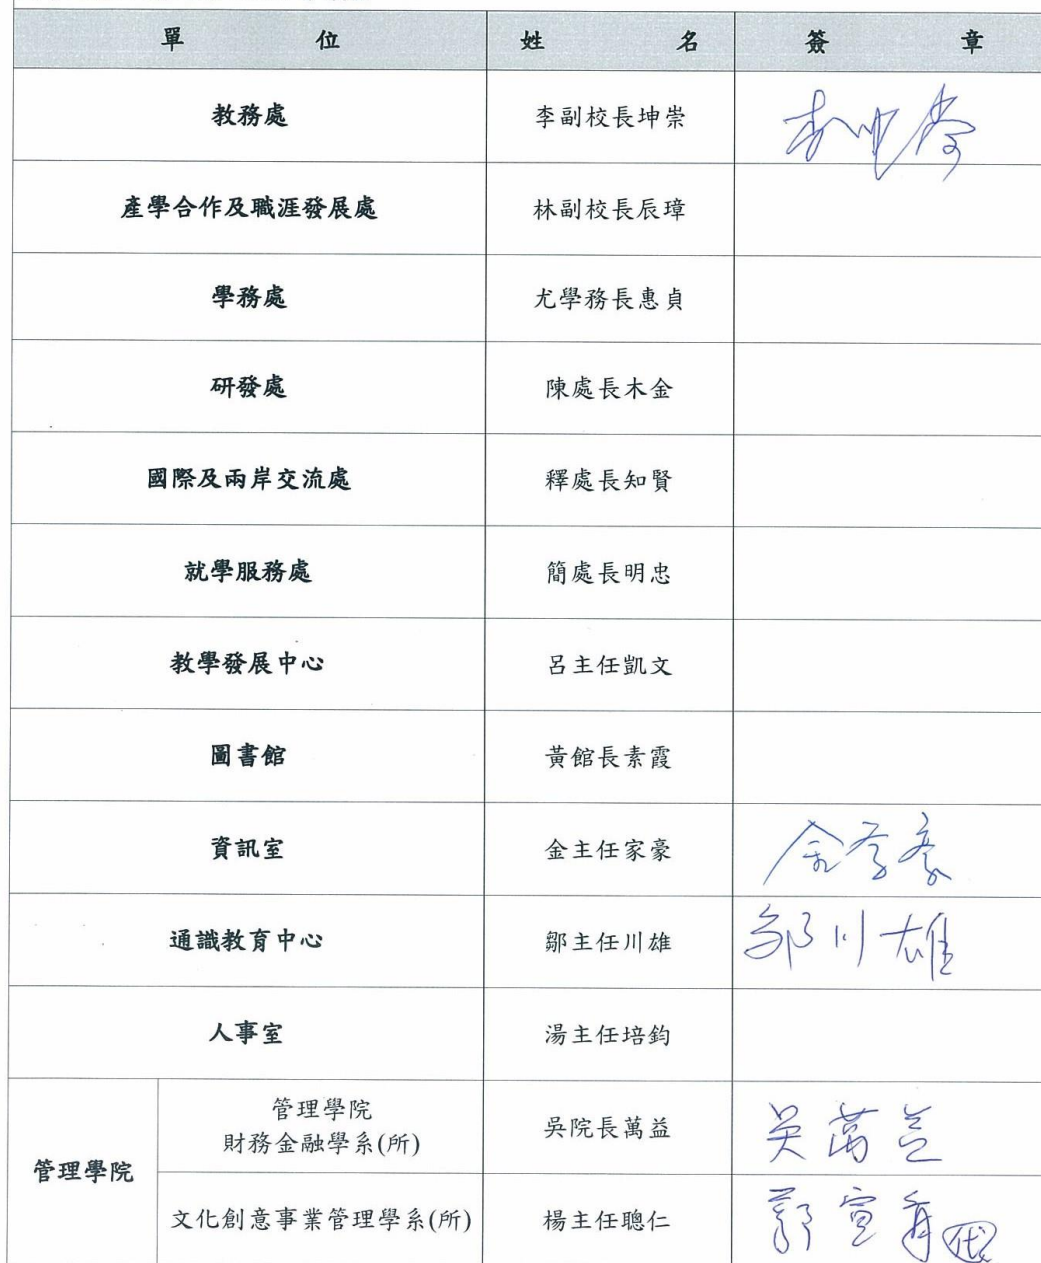 單位 姓名 簽章
教務處 李副校長坤崇 李坤崇
產學合作及職涯發展處 林副校長辰璋
學務處 尤學務長惠貞
研發處 陳處長木金
國際及兩岸交流處 釋處長知賢
就學服務處 簡處長明忠
教學發展中心 呂主任凱文
圖書館 黃館長素霞
資訊室 金主任家豪 金家豪
通識教育中心 鄒主任川雄 鄒川雄
人事室 湯主任培鈞
管理學院
管理學院
財務金融學系(所) 吳院長萬益 吳萬益
文化創意事業管理學系(所) 楊主任聰仁 代